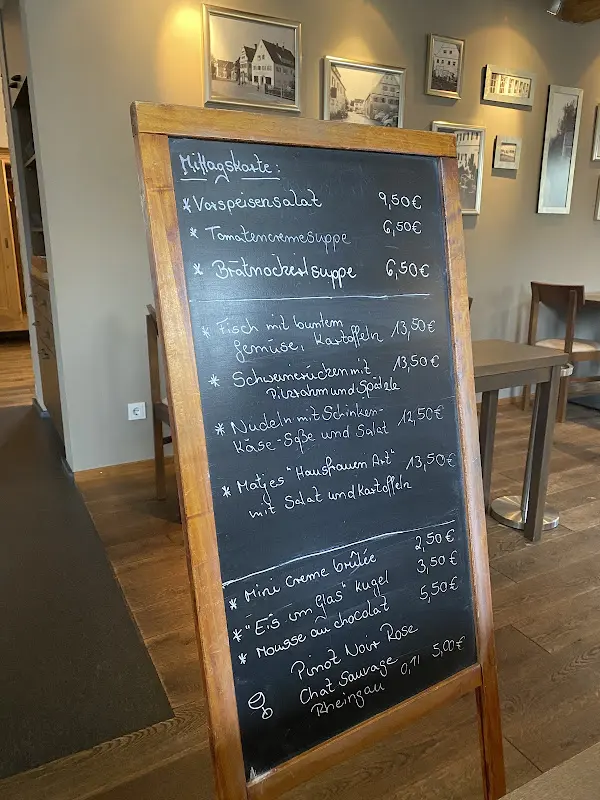 Mittagskarte:
* Vorspeisensalat 9,50€
* Tomatencremesuppe 6,50€
* Brätnockerlsuppe 6,50€
* Fisch mit buntem 13,50€
Gemüse, Kartoffeln
* Schweinerücken mit 13,50€
Pilzrahm und Spätzle
* Nudeln mit Schinken- 12,50€
Käse-Soße und Salat
* Matjes "Hausfrauen Art" 13,50€
mit Salat und Kartoffeln
* Mini Creme brûlée 2,50€
* "Eis im Glas" Kugel 3,50€
* Mousse au chocolat 5,50€
Pinot Noir Rose
Chat Sauvage 0,1l 5,00€
Rheingau